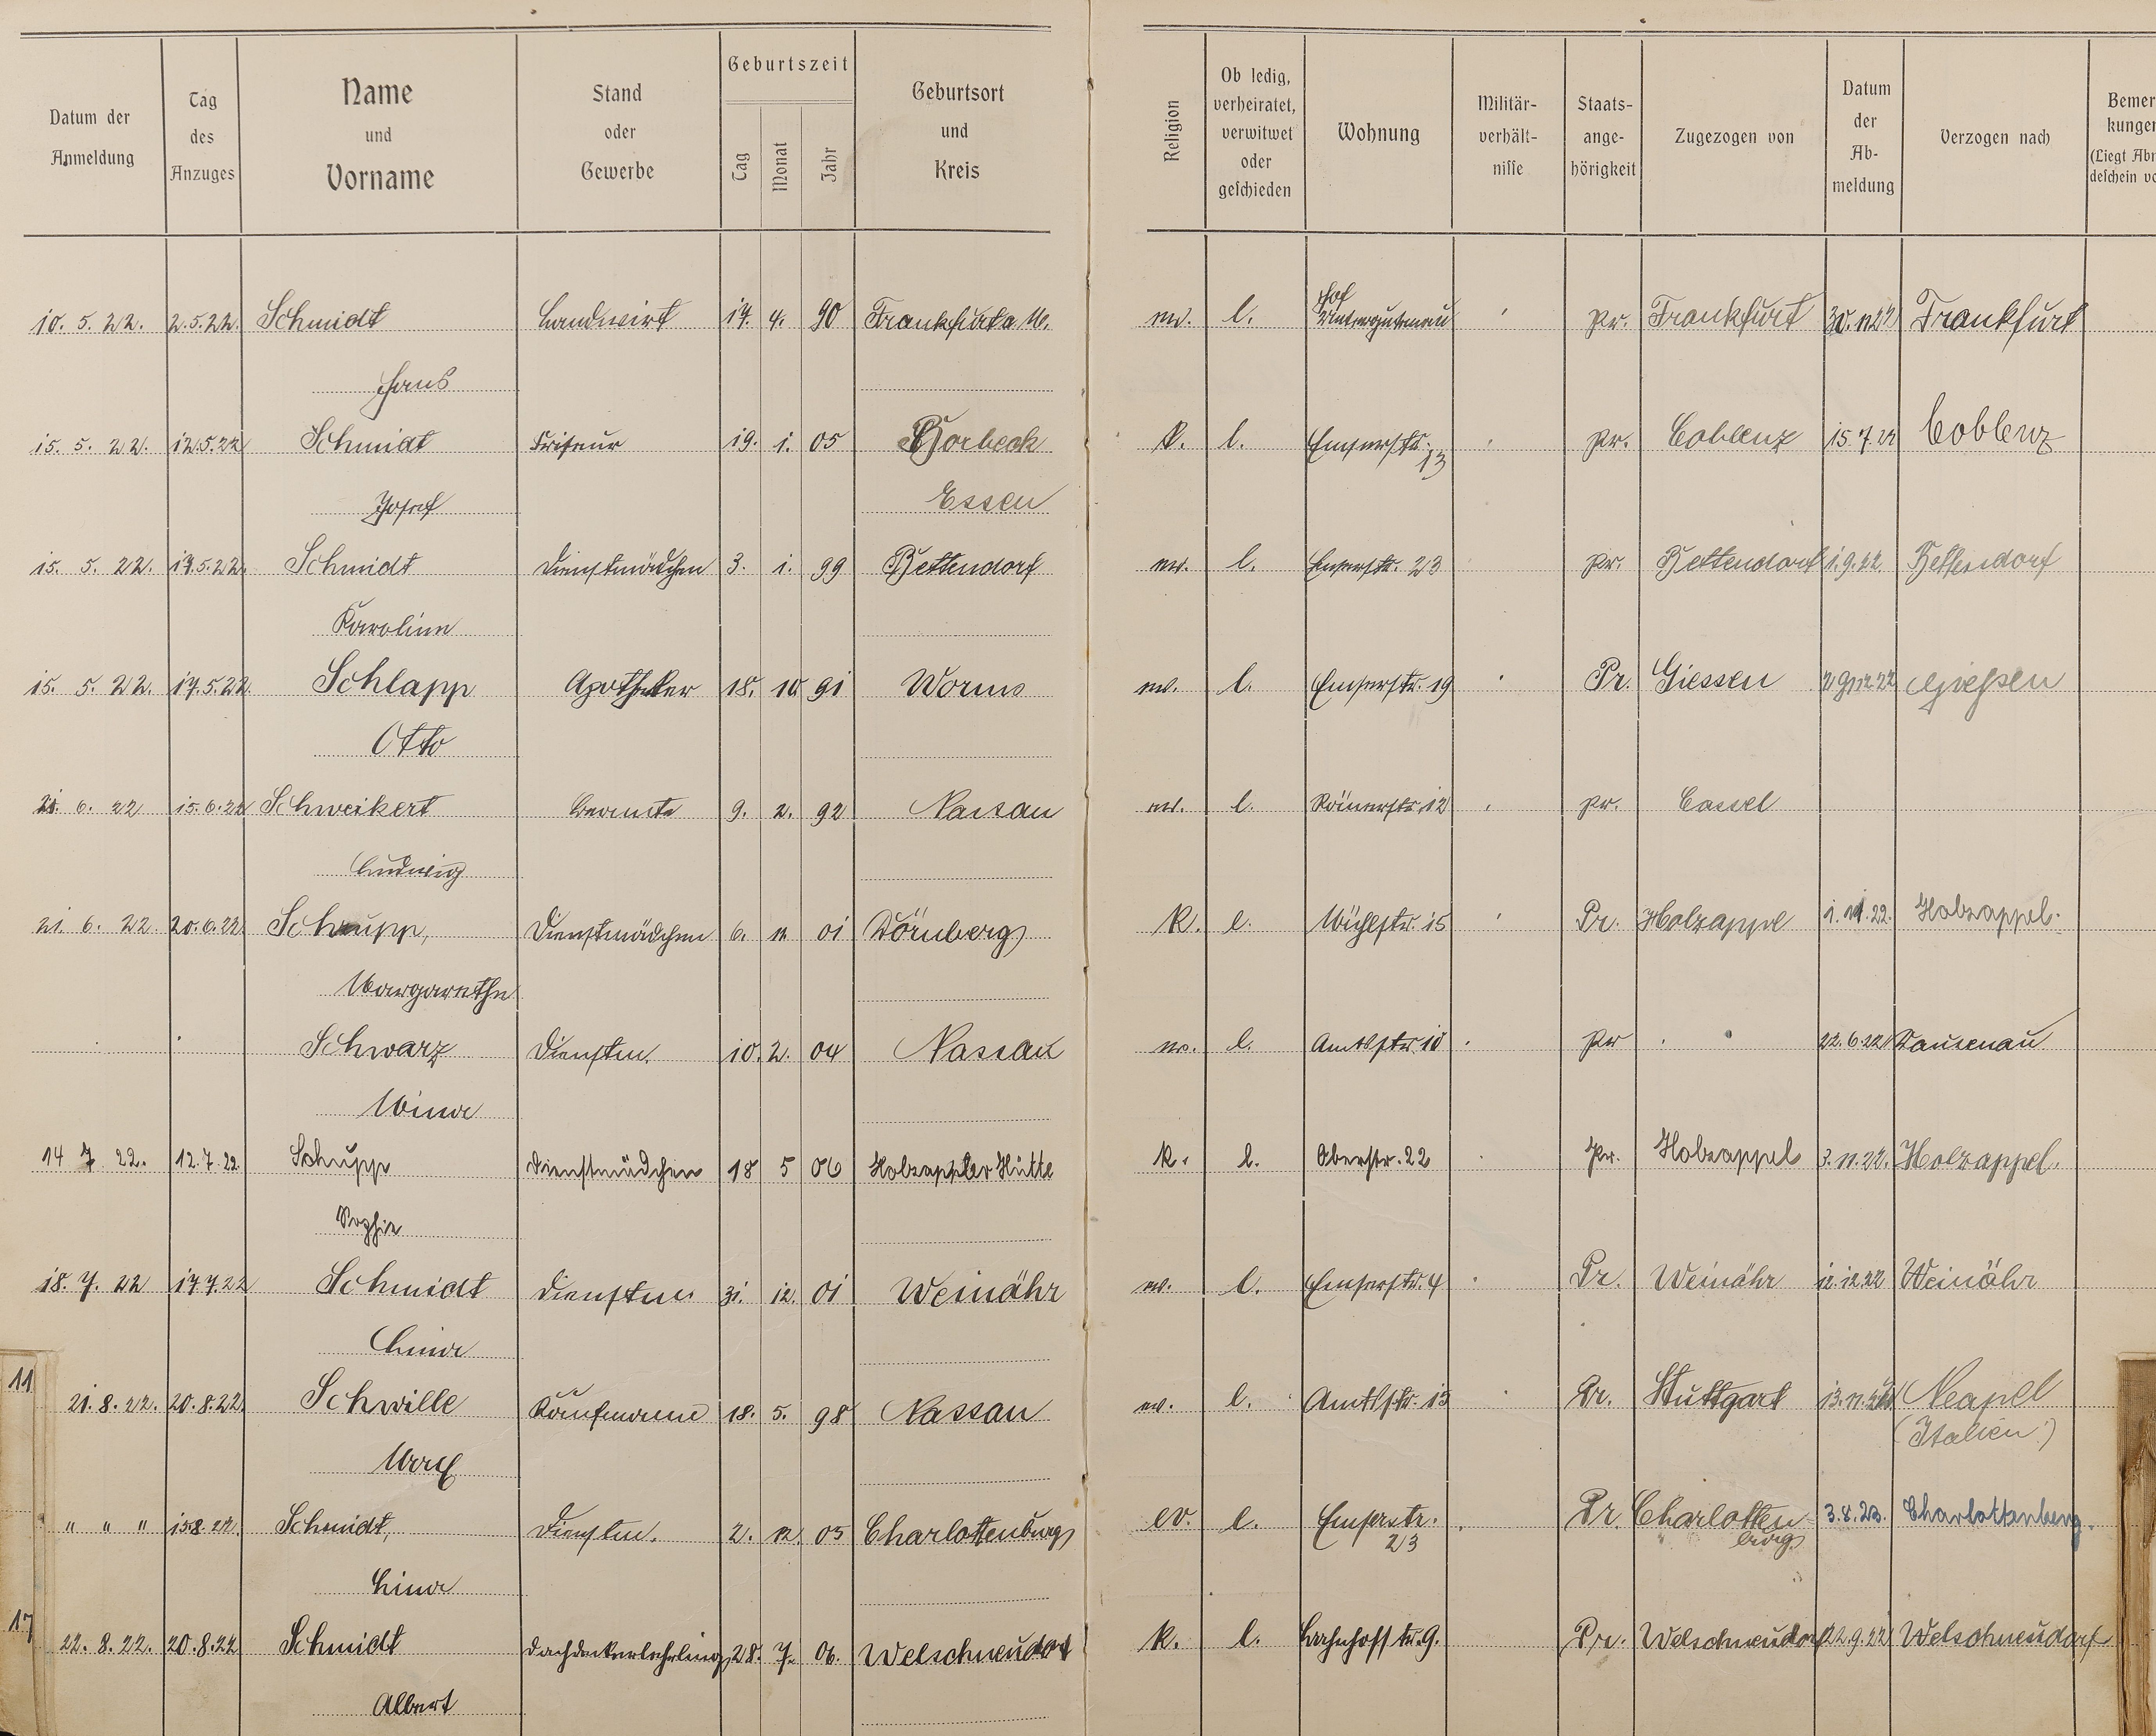 Datum der Anmeldung
Tag des Anzuges
Name und Vorname
Stand oder Gewerbe
Geburtszeit
Tag Monat Jahr
Geburtsort und Kreis
Religion
Ob ledig, verheiratet, verwitwet oder geschieden
Wohnung
Militär-verhält-nisse
Staats-ange-hörigkeit
Zugezogen von
Datum der Ab-meldung
Verzogen nach
Bemer
kungen
(Liegt Abm
deschein vo
Hof
10. 5. 22. 2.5.22. Schmidt Landwirt 17. 4. 90 Frankfurt a M. ev. l. pr. Frankfurt Frankfurt
Hans
15. 5. 22. 12.5.22 Schmidt Friseur 19. 1. 05 Borbeck k. l. Emserstr. 13 pr. Coblenz 15.7.22 Coblenz
Josef Essen
15. 5. 22. 17.5.22. Schmidt Dienstmädchen 3. 1. 99 Bettendorf ev. l. Emserstr. 23 pr. Bettendorf 1.9.22. Bettendorf
Karoline
15. 5. 22. 17.5.22. Schlapp Apotheker 18. 10. 91 Worms ev. l. Emserstr. 19 Pr. Giessen Gießen
Otto
6. 22 15.6.22 Schweikert Beamte 9. 2. 92 Nassau ev. l. Römerstr. 12 pr. Cassel
Ludwig
21 6. 22 20.6.22 Schupp, Dienstmädchen 6. 12 01 Dörnberg K. l. Mühlstr. 15 Pr. Holzappel 1.11.22. Holzappel.
Margarethe
Schwarz Dienstm. 10. 2. 04 Nassau ev. l. Amtsstr 10 pr 22.6.22 Dausenau
Minna
14 7 22. 12.7.22. Schupp Dienstmädchen 18 5 06 Holzappler Hütte k. l. Oberstr. 22 Pr. Holzappel 3.11.22. Holzappel.
Sophie
18. 7. 22 17.7.22 Schmidt Dienstm 31. 12. 01 Weinähr ev. l. Emserstr. 4 Pr. Weinähr 12.12.22 Weinähr
Lina
11
21. 8. 22. 20.8.22. Schwille Kaufmann 18. 5. 98 Nassau ev. l. Amtsstr. 13 Pr. Stuttgart Neapel
(Italien)
" " " 15.8.22. Schmidt, Dienstm. 2. 12. 05 Charlottenburg ev. l. Emserstr. Pr. Charlotten- 3.8.23. Charlottenberg.
23 burg
Lina
17
22. 8. 22. 20.8.22 Schmidt Dachdeckerlehrling 28. 7. 06. Welschneudorf k. l. Bahnhofstr. 9. Pr. Welschneudorf 22.9.22 Welschneudorf
Albert